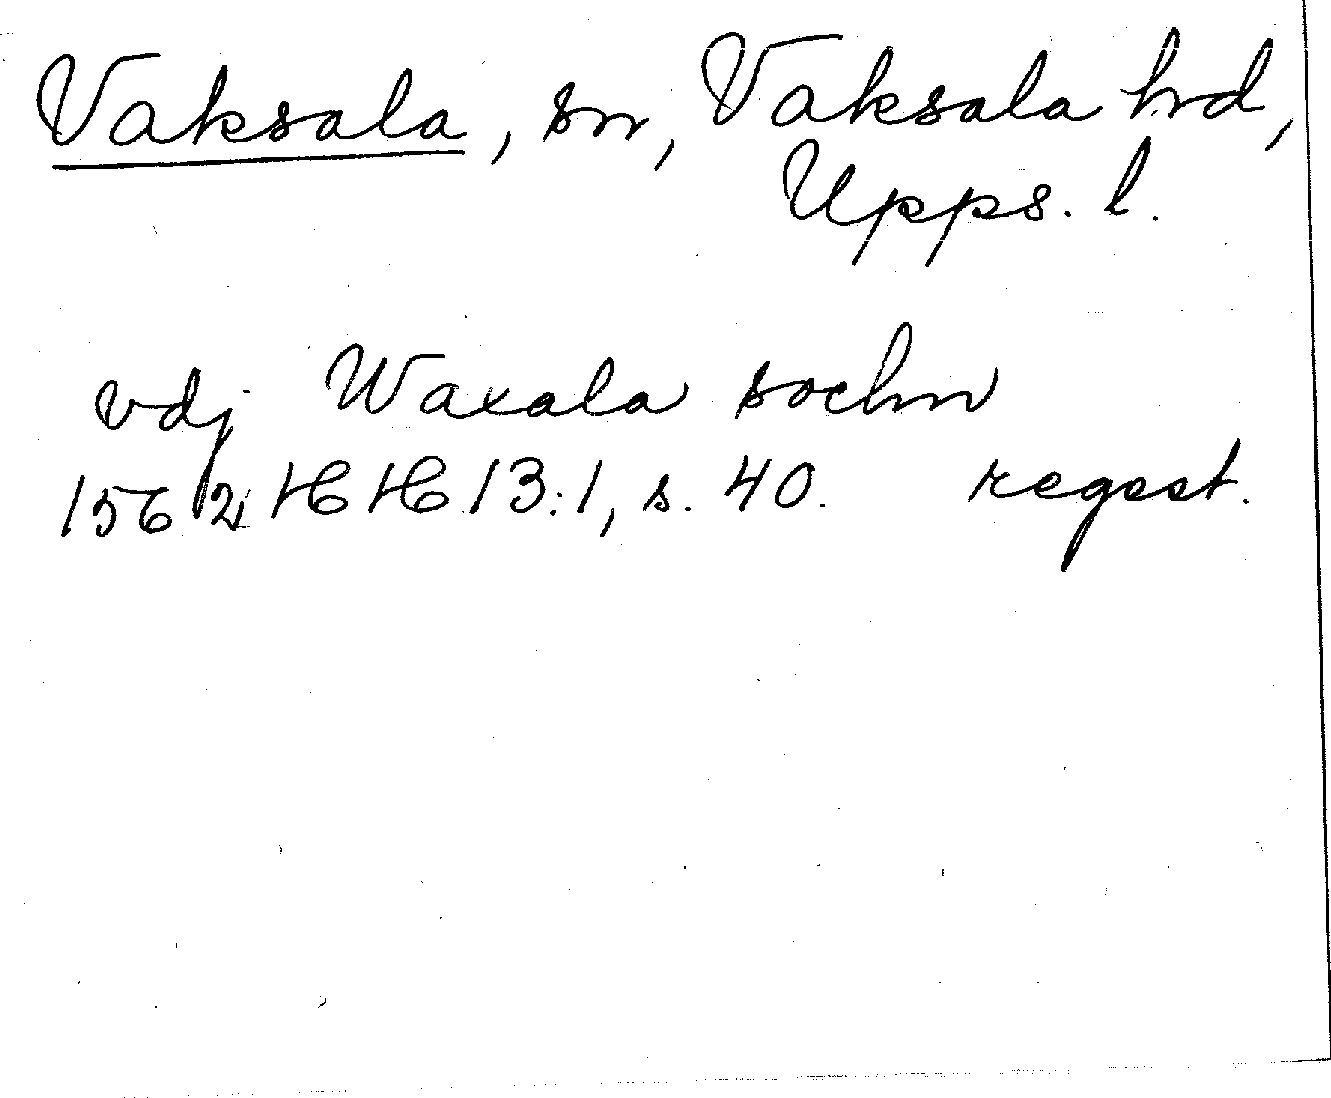 Vaksala, sn, Vaksala hrd,
Upps. l.
vdj Waxala sochn
1562 HH 13:1, s. 40. regest.